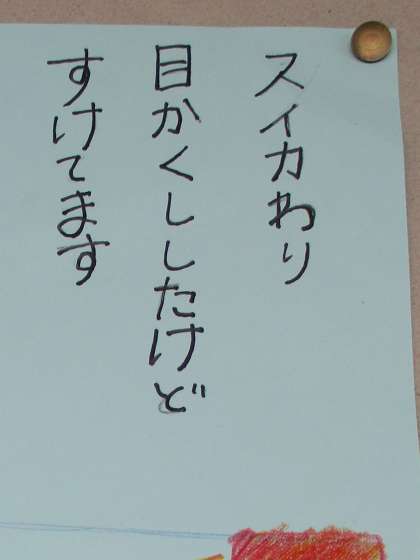 スイカわり
目かくししたけど
すけてます